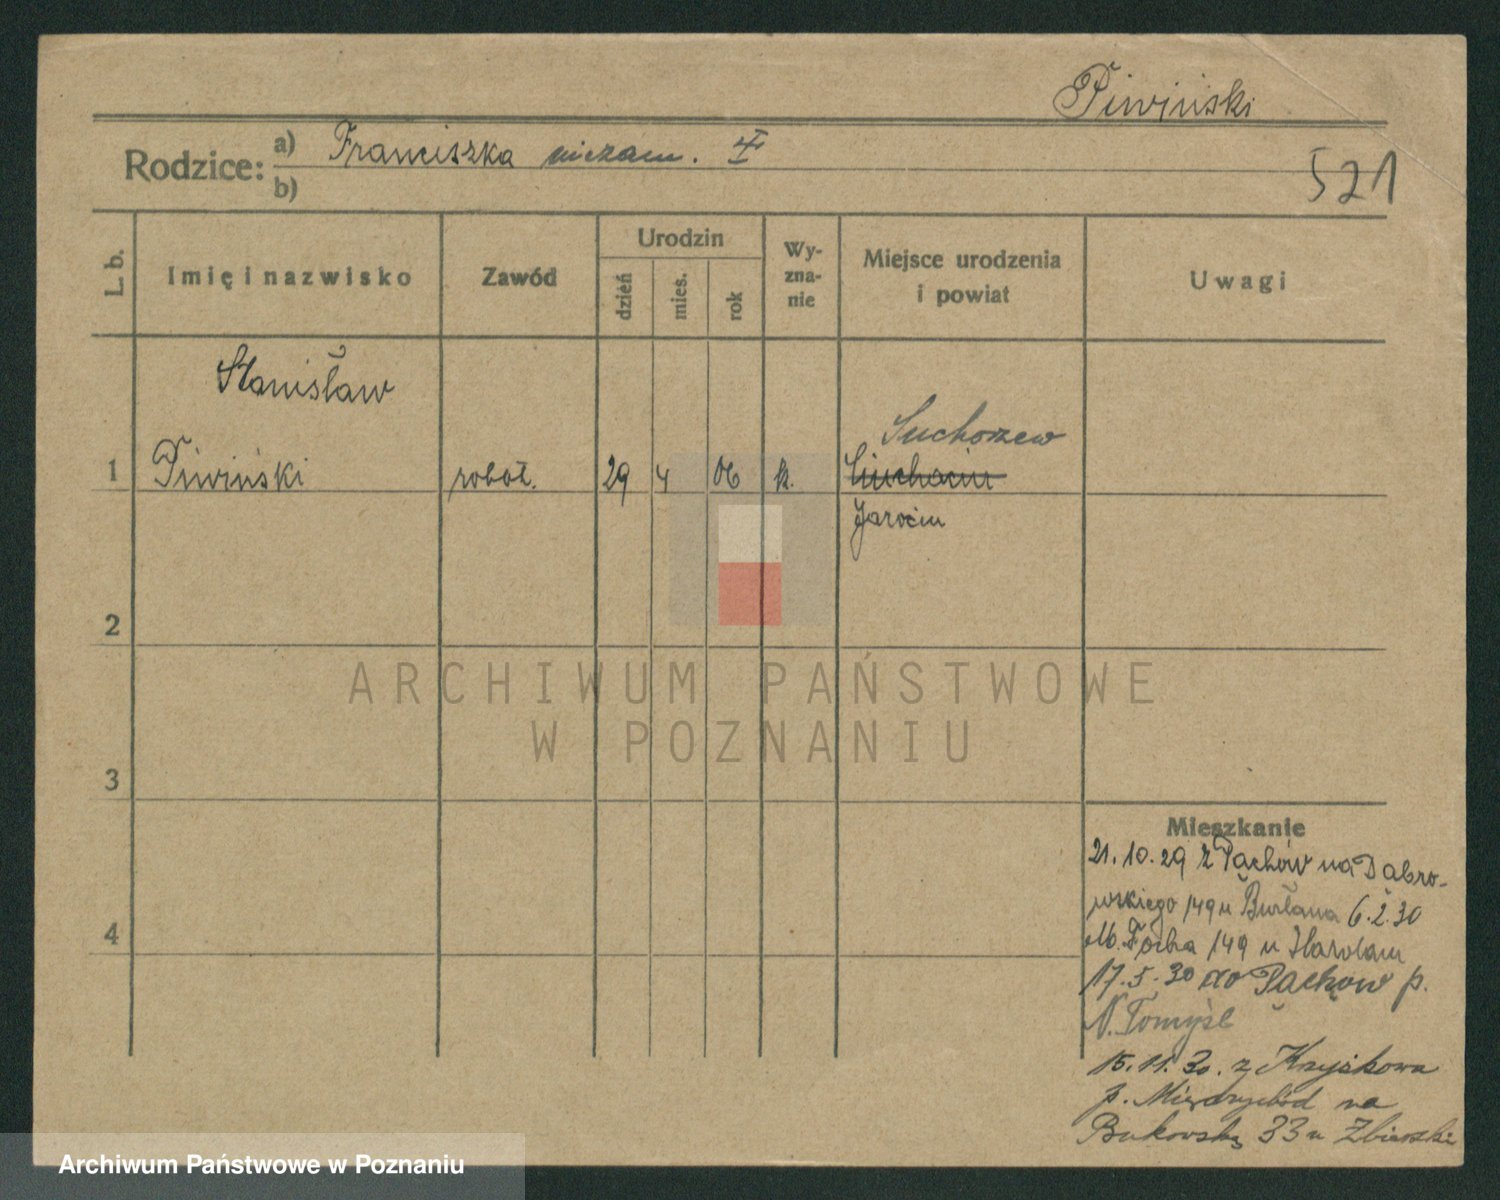 Piwiński
Rodzice: a) Franciszka niezam. I
b)
521
L. b.
Imię i nazwisko
Zawód
Urodzin
dzień
mies.
rok
Wy-
zna-
nie
Miejsce urodzenia
i powiat
Uwagi
Stanisław
Suchorzew
1 Piwiński robot. 29 4 06 k.
Jarocin
2
ARCHIWUM PAŃSTWOWE
W POZNANIU
3
Mieszkanie
21.10.29 z Pąchów na Dąbro-
wskiego 149 u 6.2.30
M. Focha 149 u
17.5.30 do Pąchów p.
N. Tomyśl
15.11.30. z Krzyżkowa
p. Międzychód na
Bukowską 33 u
4
Archiwum Państwowe w Poznaniu